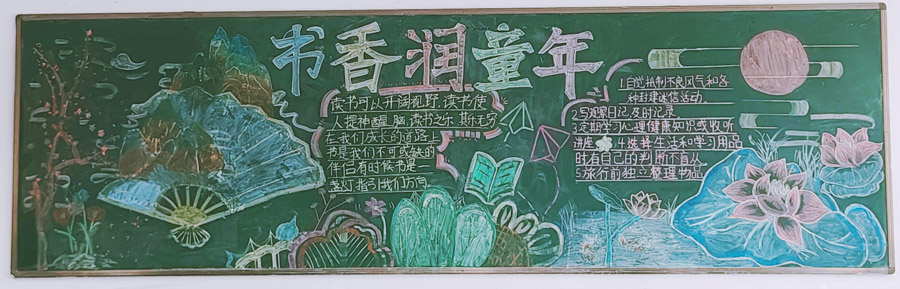 书香润童年
读书可以开阔视野,读书使
人提神醒脑,读书之乐,斯无穷
在我们成长的道路上
书是我们不可或缺的
伴侣有时候书是一
盏灯指引我们方向
1.自觉抵制不良风气和各
种封建迷信活动
2.写观察日记,及时记录
3.定期学习心理健康知识或收听
讲座 4.选择生活和学习用品
时有自己的判断不盲从
5.旅行前独立整理物品